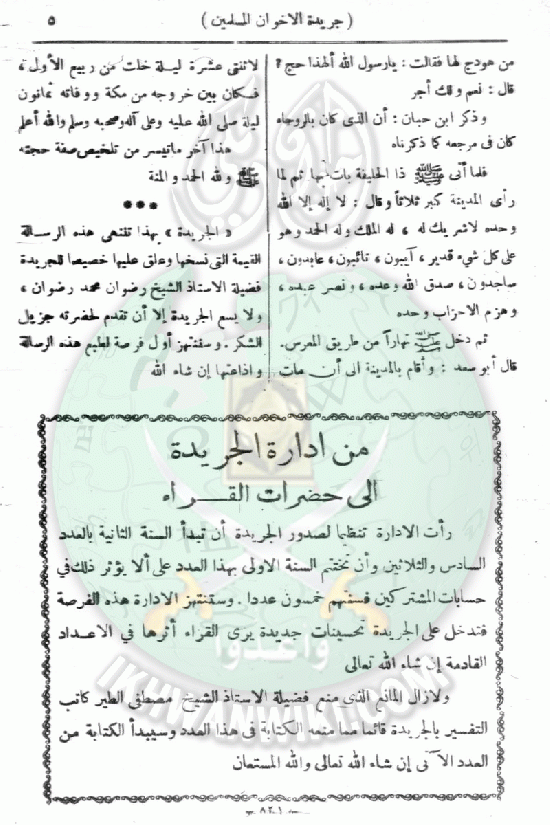 ( جريدة الاخوان المسلمين )
٥
من هودج لها فقالت : يارسول الله ألهذا حج ؟
قال : نعم ولك أجر
وذكر ابن حبان : أن الذى كان بالروحاء
كان فى مرجعه كما ذكرناه
فلما أتى ﷺ ذا الحليفة بات بها ثم لما
رأى المدينة كبر ثلاثاً وقال : لا إله إلا الله
وحده لاشريك له ، له الملك وله الحمد وهو
على كل شىء قدير ، آيبون ، تائبون ، عابدون ،
ساجدون ، صدق الله وعده ، ونصر عبده ،
وهزم الاحزاب وحده
ثم دخل ﷺ نهاراً من طريق المعرس.
قال أبو سعد : وأقام بالمدينة الى أن مات
لاثنتى عشرة ليلة خلت من ربيع الأول ،
فكان بين خروجه من مكة ووفاته ثمانون
ليلة صلى الله عليه وعلى آله وصحبه وسلم والله أعلم
هذا آخر ماتيسر من تلخيص صفة حجته
ﷺ ولله الحمد والمنة
***
« الجريدة » بهذا تنتهى هذه الرسالة
القيمة التى نسخها وعلق عليها خصيصا للجريدة
فضيلة الاستاذ الشيخ رضوان محمد رضوان ،
ولا يسع الجريدة إلا أن تقدم لحضرته جزيل
الشكر . وستنتهز أول فرصة لطبع هذه الرسالة
واذاعتها إن شاء الله
من ادارة الجريدة
الى حضرات القـــراء
رأت الادارة تنظيما لصدور الجريدة أن تبدأ السنة الثانية بالعدد
السادس والثلاثين وأن تختتم السنة الاولى بهذا العدد على ألا يؤثر ذلك فى
حسابات المشتركين فسنتهم خمسون عددا . وستنتهز الادارة هذه الفرصة
فتدخل على الجريدة تحسينات جديدة يرى القراء أثرها فى الاعداد
القادمة إن شاء الله تعالى
ولازال المانع الذى منع فضيلة الاستاذ الشيخ مصطفى الطير كاتب
التفسير بالجريدة قائما مما منعه الكتابة فى هذا العدد وسيبدأ الكتابة من
العدد الآتى إن شاء الله تعالى والله المستعان
وأعدوا
IKHWANWIKI.COM